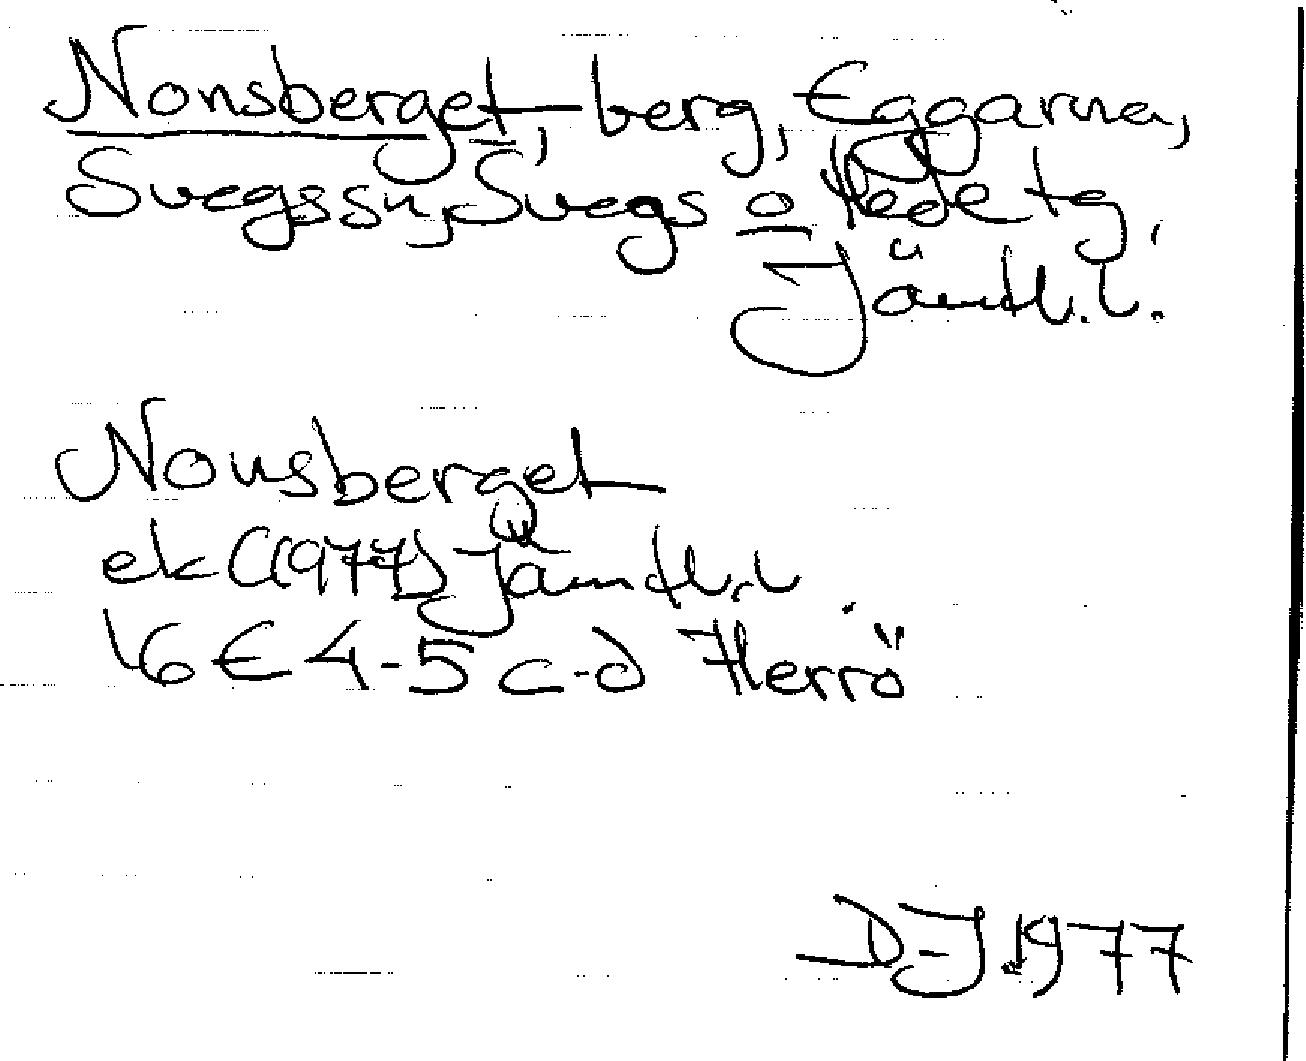 Nonsberget, berg, Eggarna,
Svegs sn, Svegs o Hede tg,
Jämtl. l.
Nonsberget
ek (1977) Jämtl. l
16E 4-5 c-d Herrö
D-J 1977